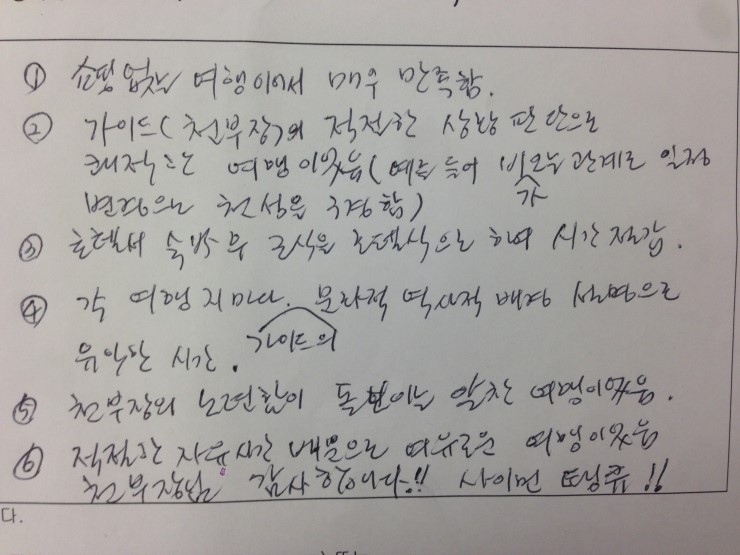 ① 쇼핑 없는 여행이어서 매우 만족함.
② 가이드(천부장)의 적절한 상황 판단으로
쾌적한 여행이었음(예를 들어 비가 오는 관계로 일정
변경으로 천성을 구경함)
③ 호텔서 숙박 후 조식을 호텔식으로 하여 시간 절감.
④ 각 여행지마다. 가이드의 문화적 역사적 배경 설명으로
유익한 시간.
⑤ 천부장의 노련함이 돋보이는 알찬 여행이었음.
⑥ 적절한 자유시간 배분으로 여유로운 여행이었음
천부장님 감사합니다!! 사이먼 땡큐!!
다.